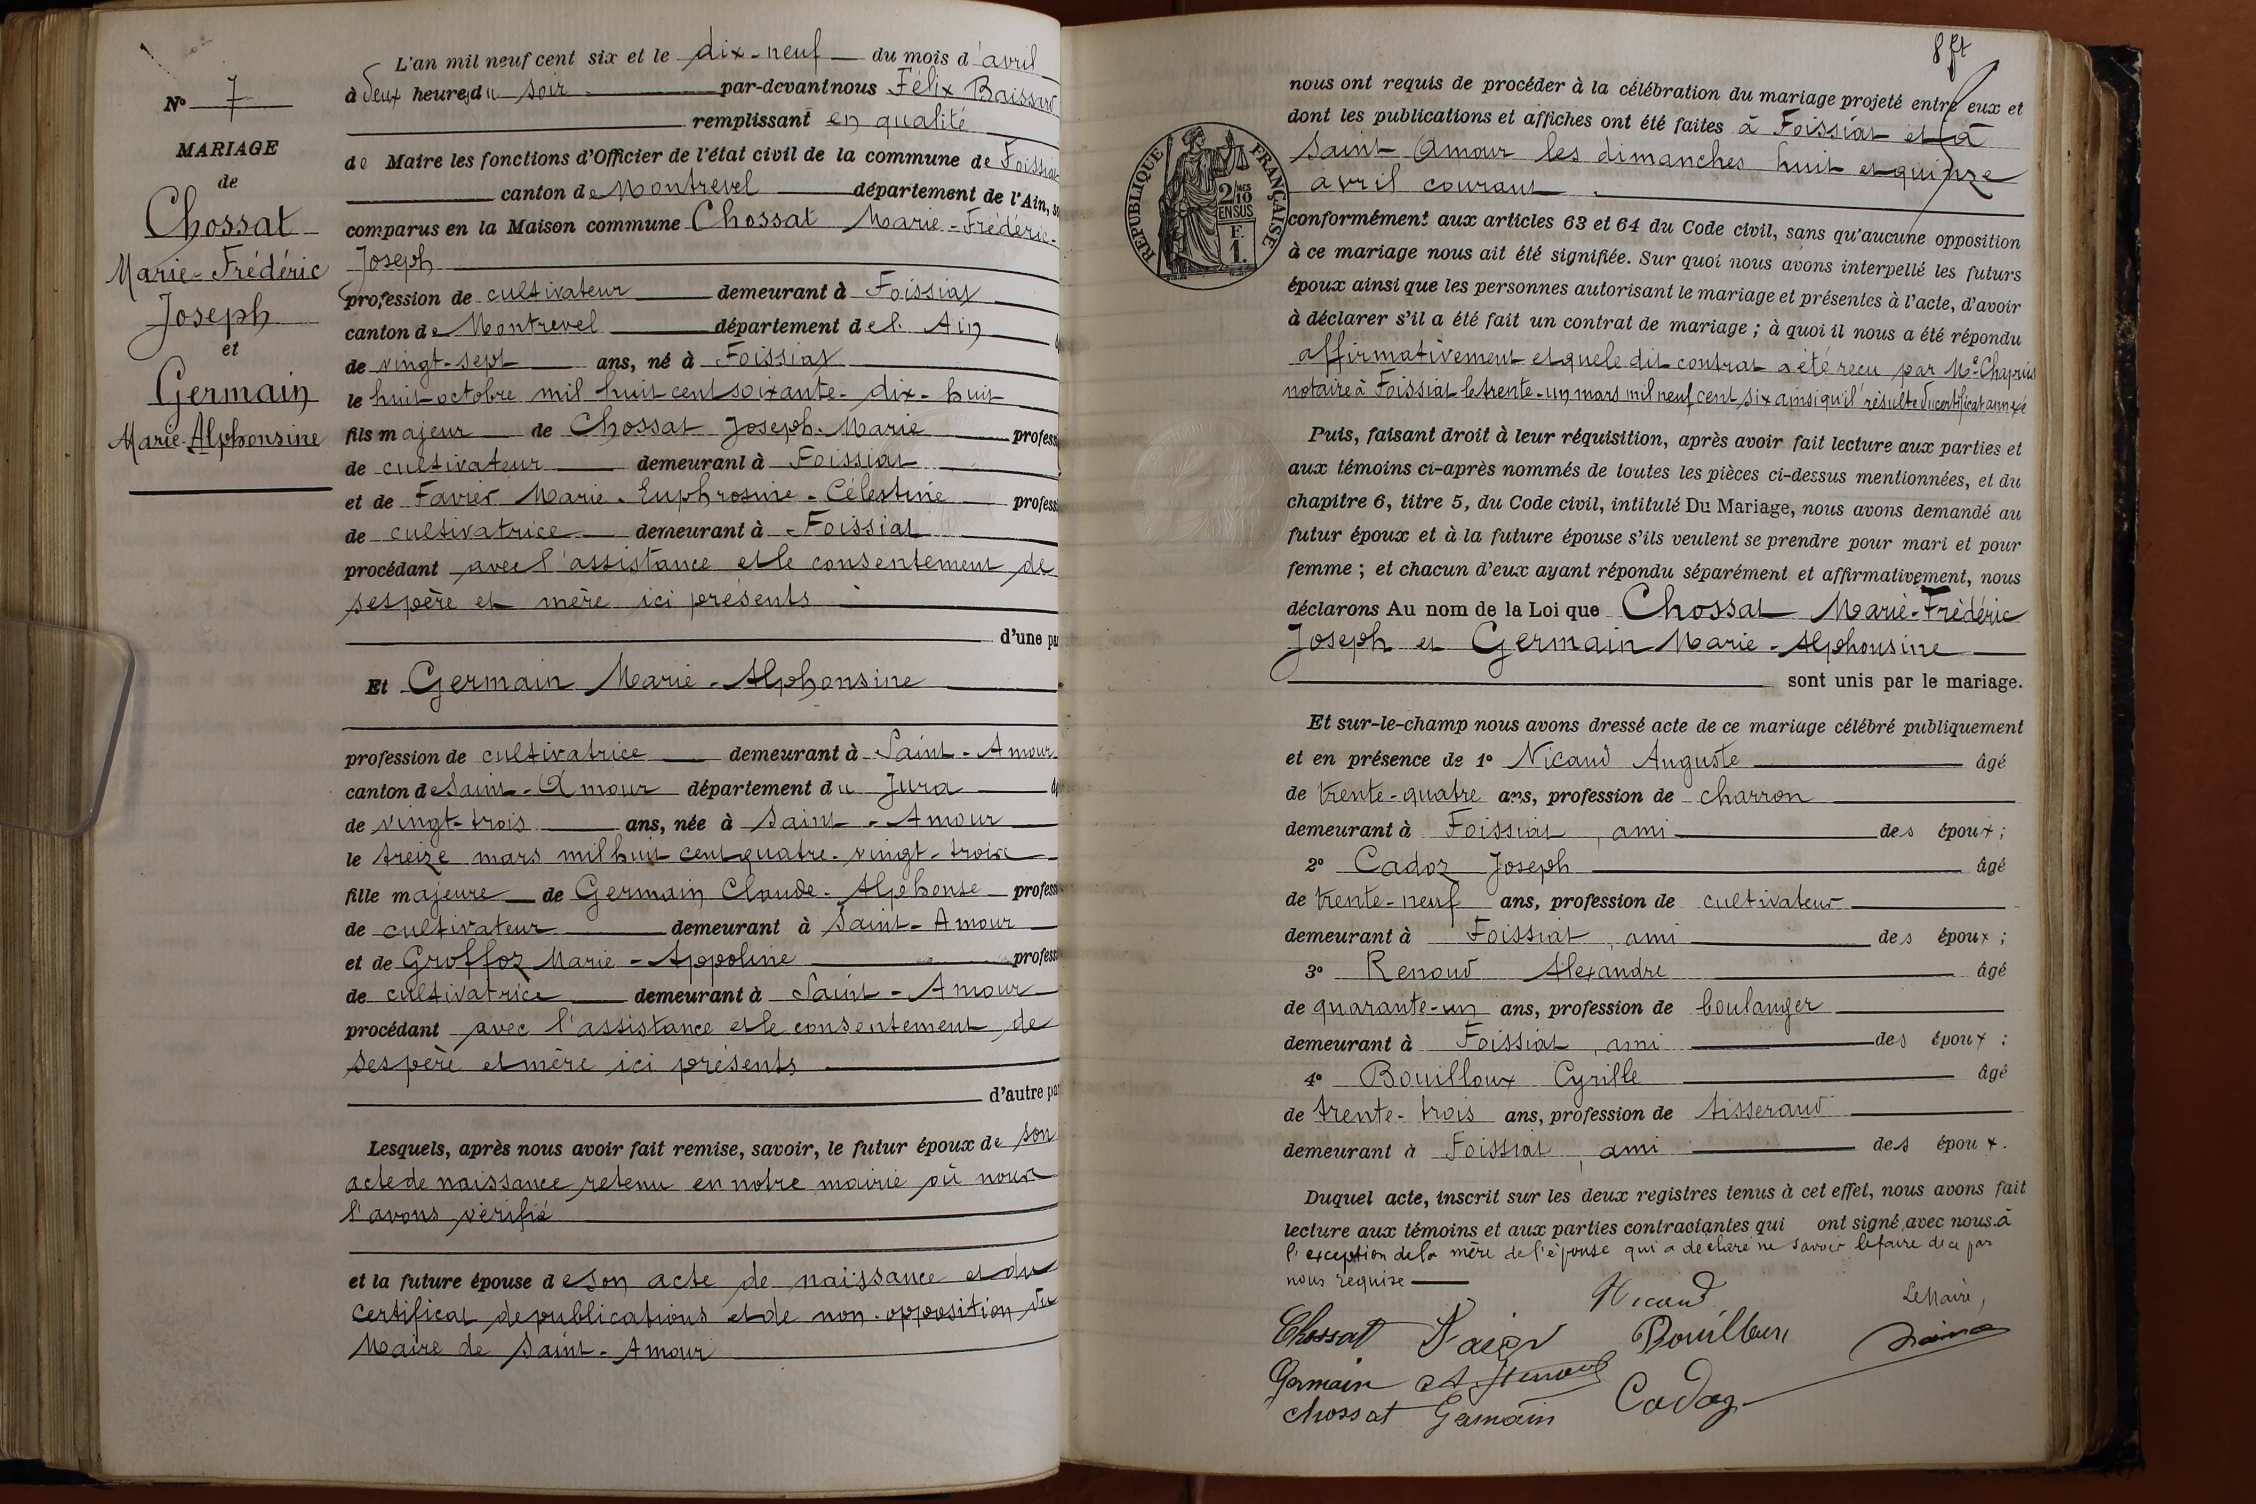 N° 7
MARIAGE
de
Chossat
Marie-Frédéric
Joseph
et
Germain
Marie-Alphonsine
L'an mil neuf cent six et le dix-neuf du mois d'avril
à deux heures du soir par-devant nous Félix Baissard
remplissant en qualité
de Maire les fonctions d'Officier de l'état civil de la commune de Foissiat
canton de Montrevel département de l'Ain, s
comparus en la Maison commune Chossat Marie-Frédéric-
Joseph
profession de cultivateur demeurant à Foissiat
canton de Montrevel département de l'Ain
de vingt-sept ans, né à Foissiat
le huit octobre mil huit cent soixante-dix-huit
fils majeur de Chossat Joseph-Marie profess
de cultivateur demeurant à Foissiat
et de Favier Marie-Euphrosine-Célestine profess
de cultivatrice demeurant à Foissiat
procédant avec l'assistance et le consentement de
ses père et mère ici présents
d'une pa
Et Germain Marie-Alphonsine
profession de cultivatrice demeurant à Saint-Amour
canton de Saint-Amour département du Jura
de vingt-trois ans, née à Saint-Amour
le treize mars mil huit cent quatre-vingt-trois
fille majeure de Germain Claude-Alphonse profess
de cultivateur demeurant à Saint-Amour
et de Groffoz Marie-Appoline profess
de cultivatrice demeurant à Saint-Amour
procédant avec l'assistance et le consentement de
ses père et mère ici présents
d'autre pa
Lesquels, après nous avoir fait remise, savoir, le futur époux de son
acte de naissance retenu en notre mairie où nous
l'avons vérifié
et la future épouse de son acte de naissance et du
certificat de publications et de non-opposition du
Maire de Saint-Amour
8 ft
RÉPUBLIQUE FRANÇAISE
2/10 MES
EN SUS
F.
1.
nous ont requis de procéder à la célébration du mariage projeté entre eux et
dont les publications et affiches ont été faites à Foissiat et à
Saint Amour les dimanches huit et quinze
avril courant
conformément aux articles 63 et 64 du Code civil, sans qu'aucune opposition
à ce mariage nous ait été signifiée. Sur quoi nous avons interpellé les futurs
époux ainsi que les personnes autorisant le mariage et présentes à l'acte, d'avoir
à déclarer s'il a été fait un contrat de mariage ; à quoi il nous a été répondu
affirmativement et que le dit contrat a été reçu par Me Chapuis
notaire à Foissiat le trente-un mars mil neuf cent six ainsi qu'il résulte du certificat annexé
Puis, faisant droit à leur réquisition, après avoir fait lecture aux parties et
aux témoins ci-après nommés de toutes les pièces ci-dessus mentionnées, et du
chapitre 6, titre 5, du Code civil, intitulé Du Mariage, nous avons demandé au
futur époux et à la future épouse s'ils veulent se prendre pour mari et pour
femme ; et chacun d'eux ayant répondu séparément et affirmativement, nous
déclarons Au nom de la Loi que Chossat Marie-Frédéric
Joseph et Germain Marie-Alphonsine
sont unis par le mariage.
Et sur-le-champ nous avons dressé acte de ce mariage célébré publiquement
et en présence de 1° Nicaud Auguste âgé
de trente-quatre ans, profession de charron
demeurant à Foissiat, ami des époux ;
2° Cadoz Joseph âgé
de trente-neuf ans, profession de cultivateur
demeurant à Foissiat, ami des époux ;
3° Renoud Alexandre âgé
de quarante-un ans, profession de boulanger
demeurant à Foissiat, ami des époux ;
4° Bouilloux Cyrille âgé
de trente-trois ans, profession de tisserand
demeurant à Foissiat, ami des époux.
Duquel acte, inscrit sur les deux registres tenus à cet effet, nous avons fait
lecture aux témoins et aux parties contractantes qui ont signé avec nous à
l'exception de la mère de l'épouse qui a déclaré ne savoir le faire de ce par
nous requise
Nicaud Le Maire,
Chossat Bouilloux
Germain Cadoz
Chossat Germain